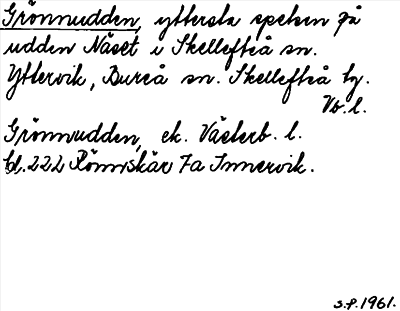 Grönnudden, yttersta spetsen på
udden Näset i Skellefteå sn.
Yttervik, Bureå sn. Skellefteå tg.
Vb. l.
Grönnudden, ek. Västerb. l.
bl. 222 Rönnskär 7a Innervik.
S.F. 1961.